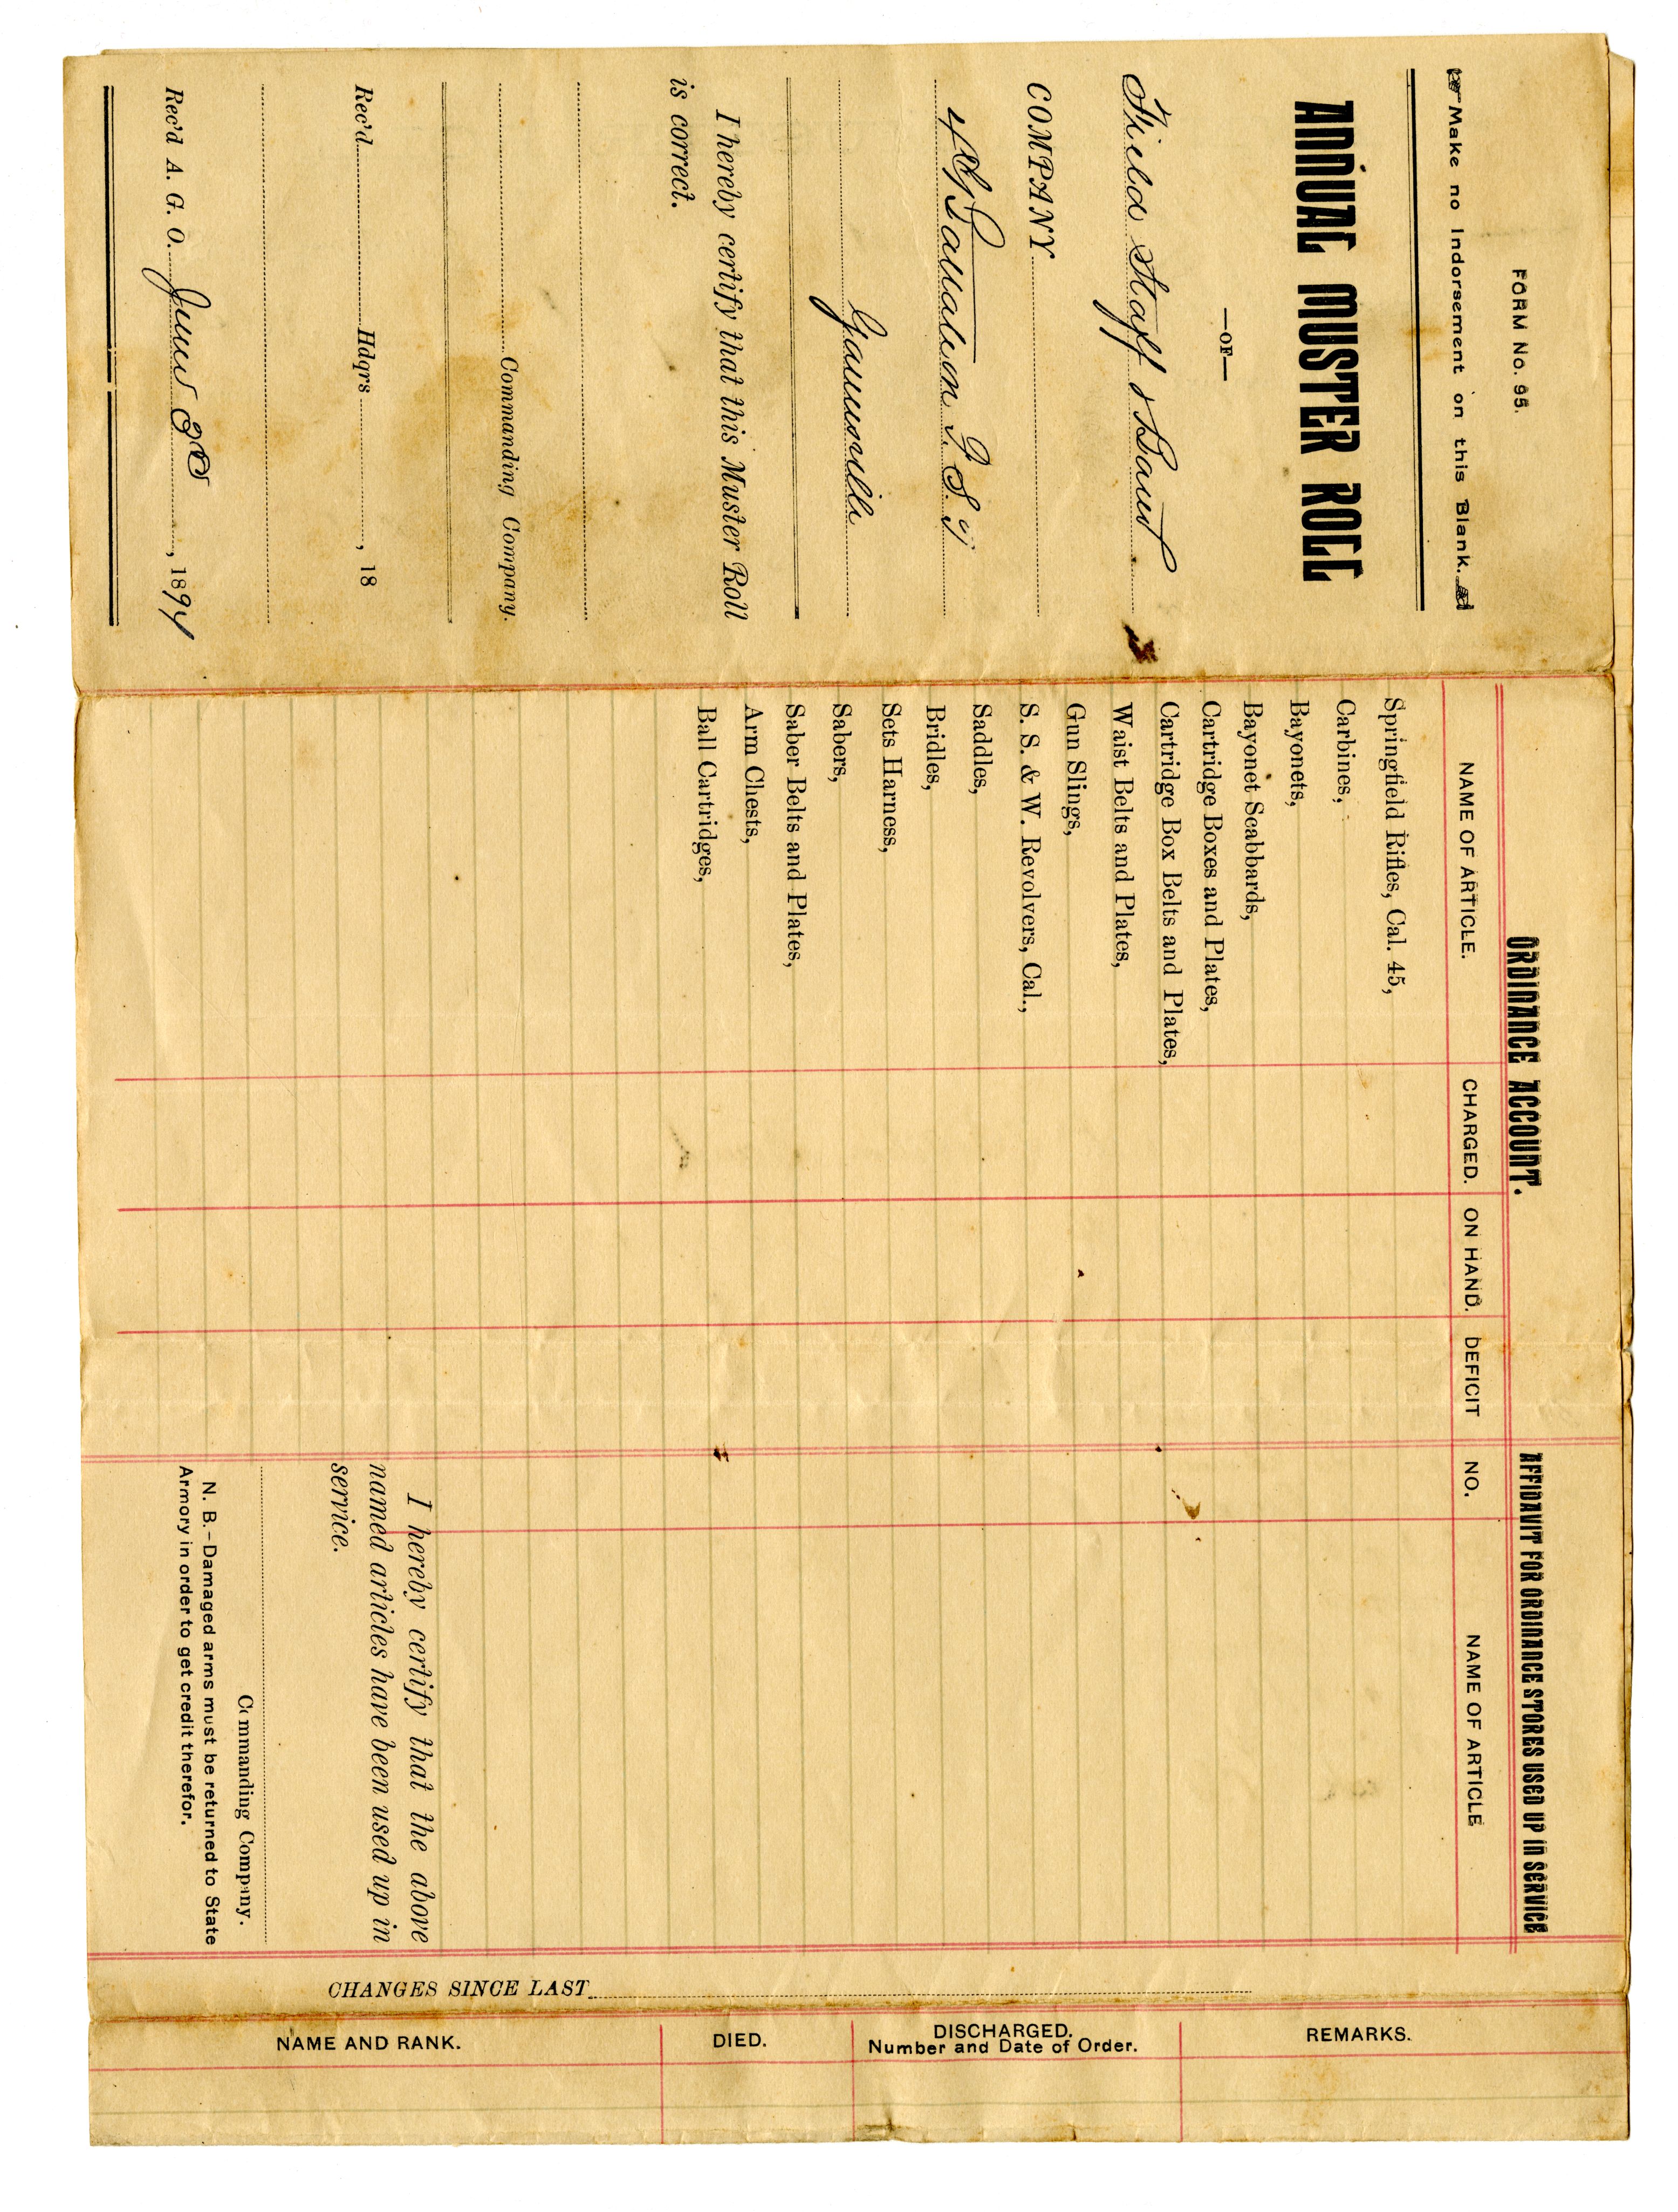 FORM No. 95.
Make no Indorsement on this Blank.
ANNUAL MUSTER ROLL
—OF—
Field Staff & Band
COMPANY
4th Battalion F. S. T
Gainesville
I hereby certify that this Muster Roll
is correct.
Commanding Company.
Rec'd Hdqrs , 18
Rec'd A. G. O. June 30 , 1894
ORDINANCE ACCOUNT.
NAME OF ARTICLE. CHARGED. ON HAND. DEFICIT
Springfield Rifles, Cal. 45,
Carbines,
Bayonets,
Bayonet Scabbards,
Cartridge Boxes and Plates,
Cartridge Box Belts and Plates,
Waist Belts and Plates,
Gun Slings,
S. S. & W. Revolvers, Cal.,
Saddles,
Bridles,
Sets Harness,
Sabers,
Saber Belts and Plates,
Arm Chests,
Ball Cartridges,
AFFIDAVIT FOR ORDINANCE STORES USED UP IN SERVICE
NO. NAME OF ARTICLE
I hereby certify that the above
named articles have been used up in
service.
Commanding Company.
N. B.—Damaged arms must be returned to State
Armory in order to get credit therefor.
CHANGES SINCE LAST
NAME AND RANK. DIED. DISCHARGED. REMARKS.
Number and Date of Order.